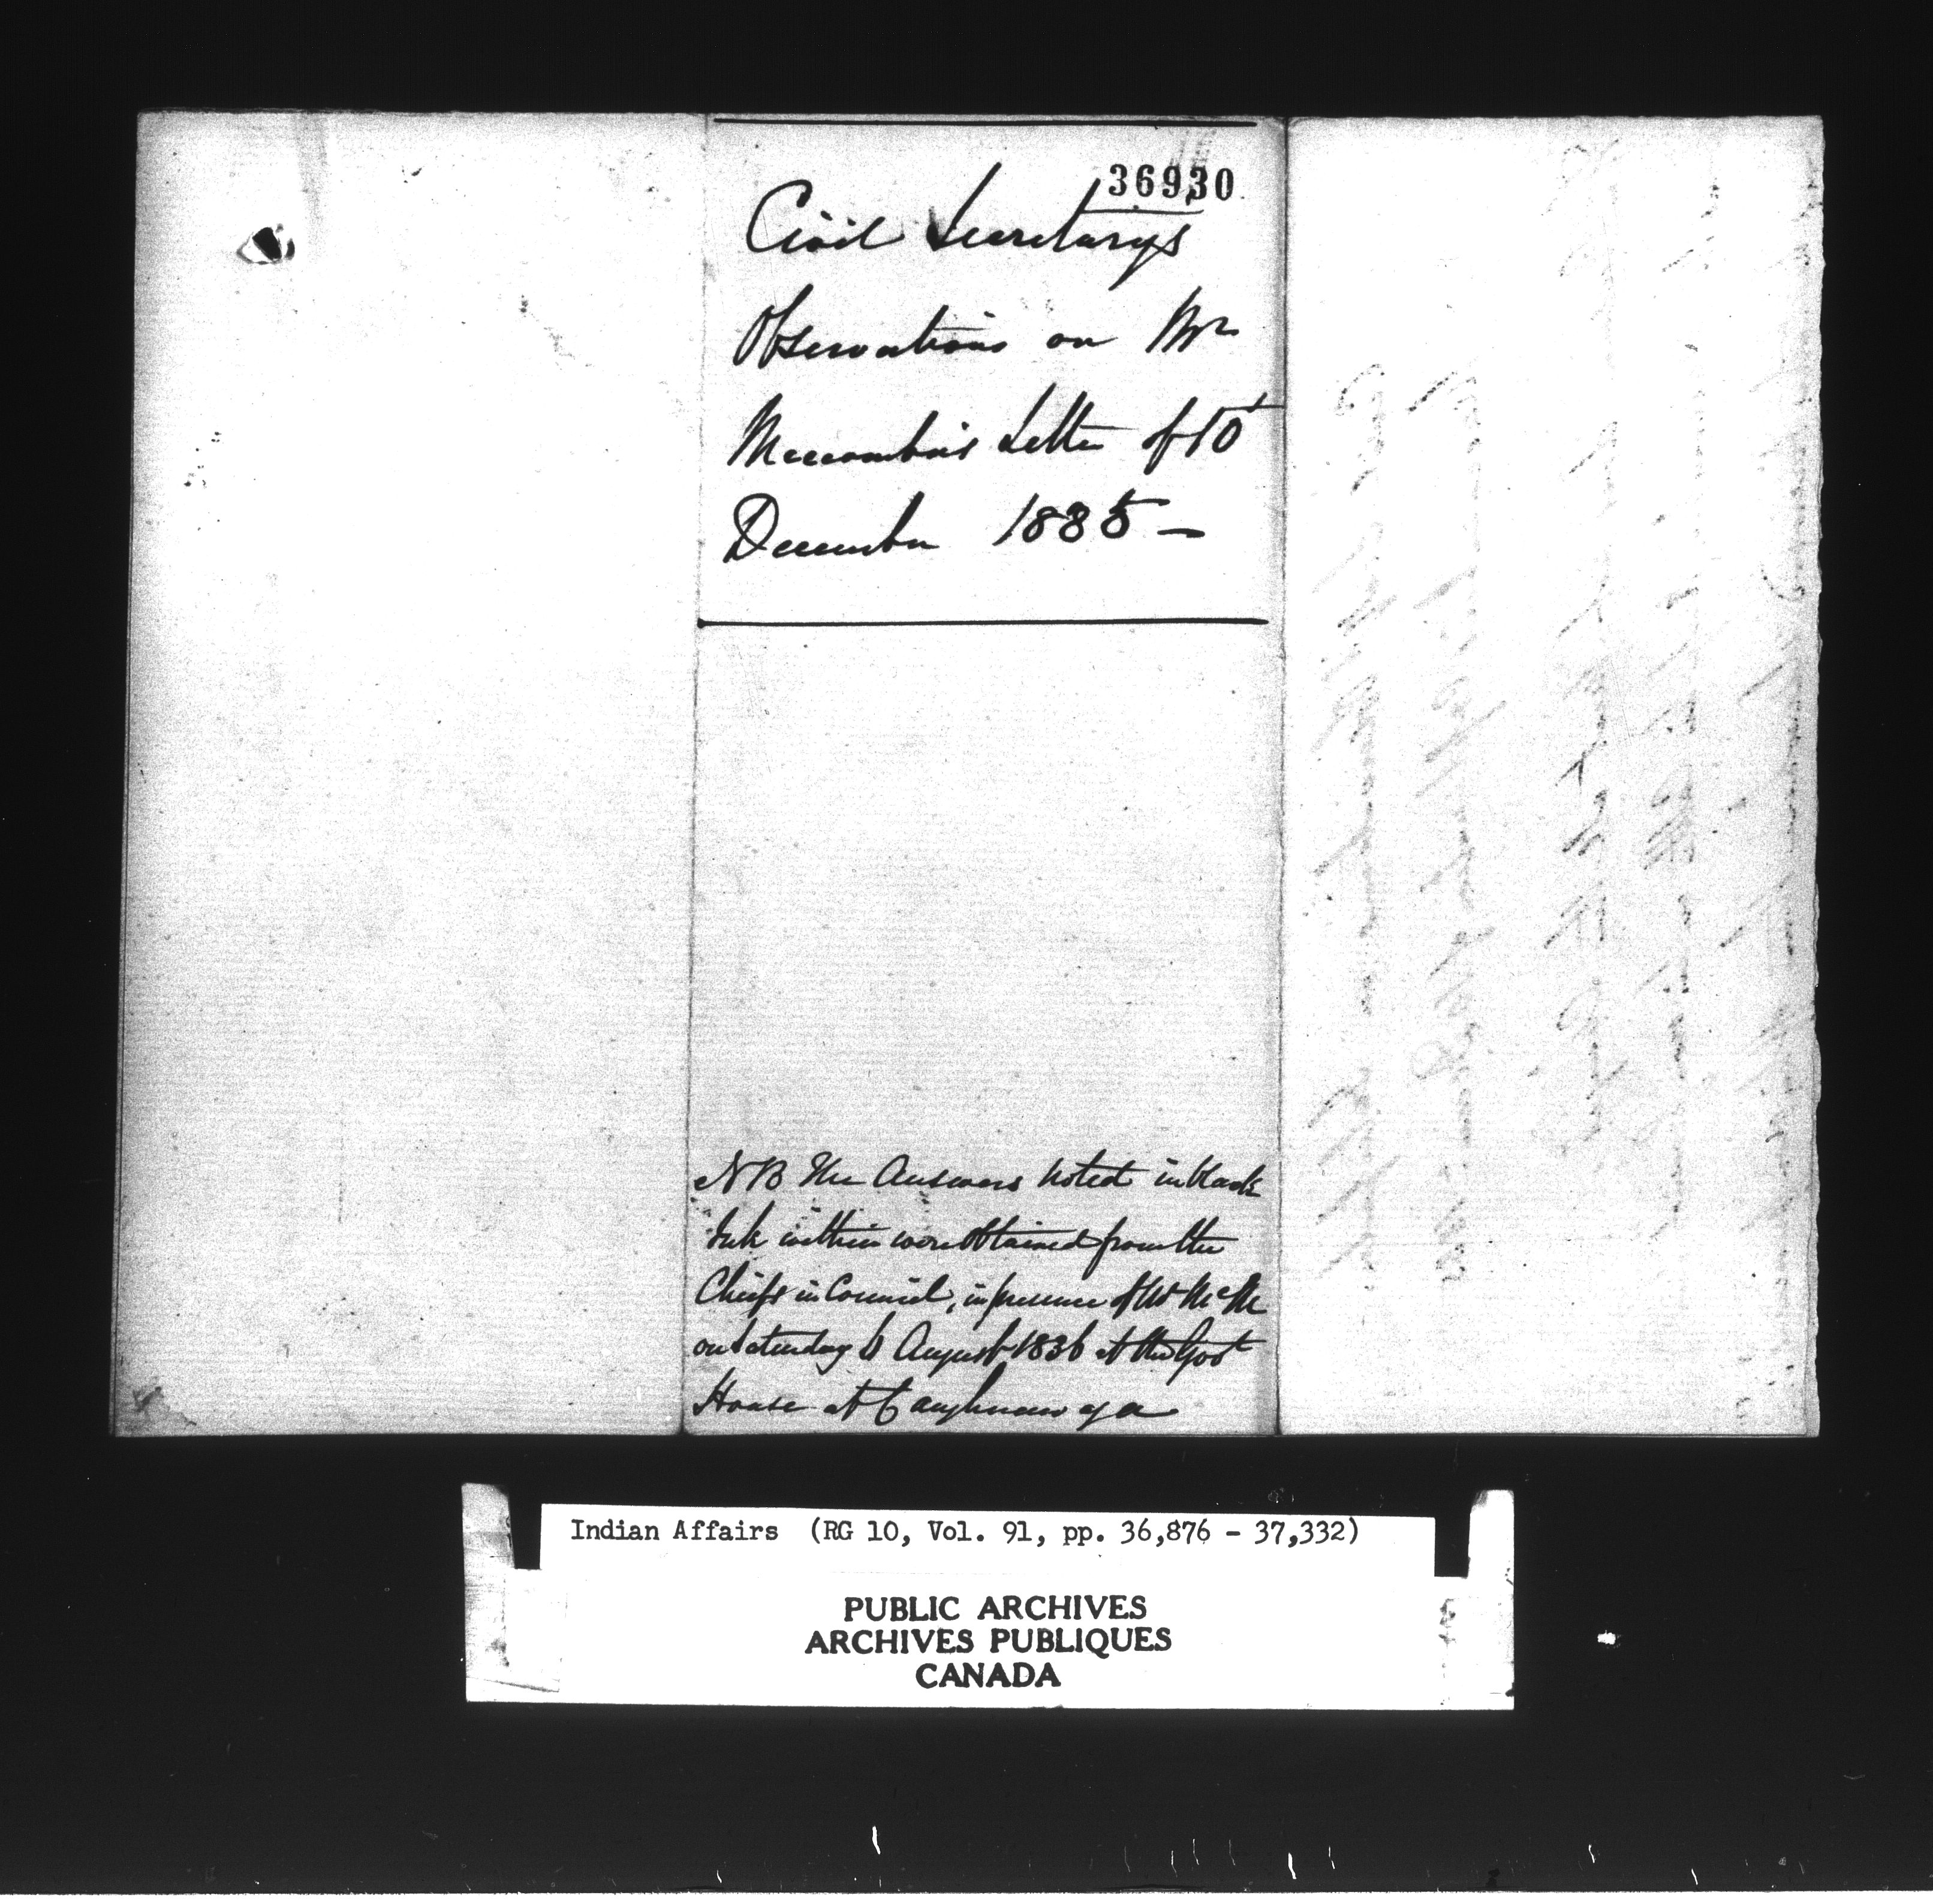 36930
Civil Secretarys
Observations on Mr
Letter of 10
December 1835 —
NB The Answers noted in black
Ink within were obtained from the
Chiefs in Council, in presence of
on Saturday 6 August 1836 at the Govt
House at Caughnawaga
Indian Affairs (RG 10, Vol. 91, pp. 36,876 - 37,332)
PUBLIC ARCHIVES
ARCHIVES PUBLIQUES
CANADA